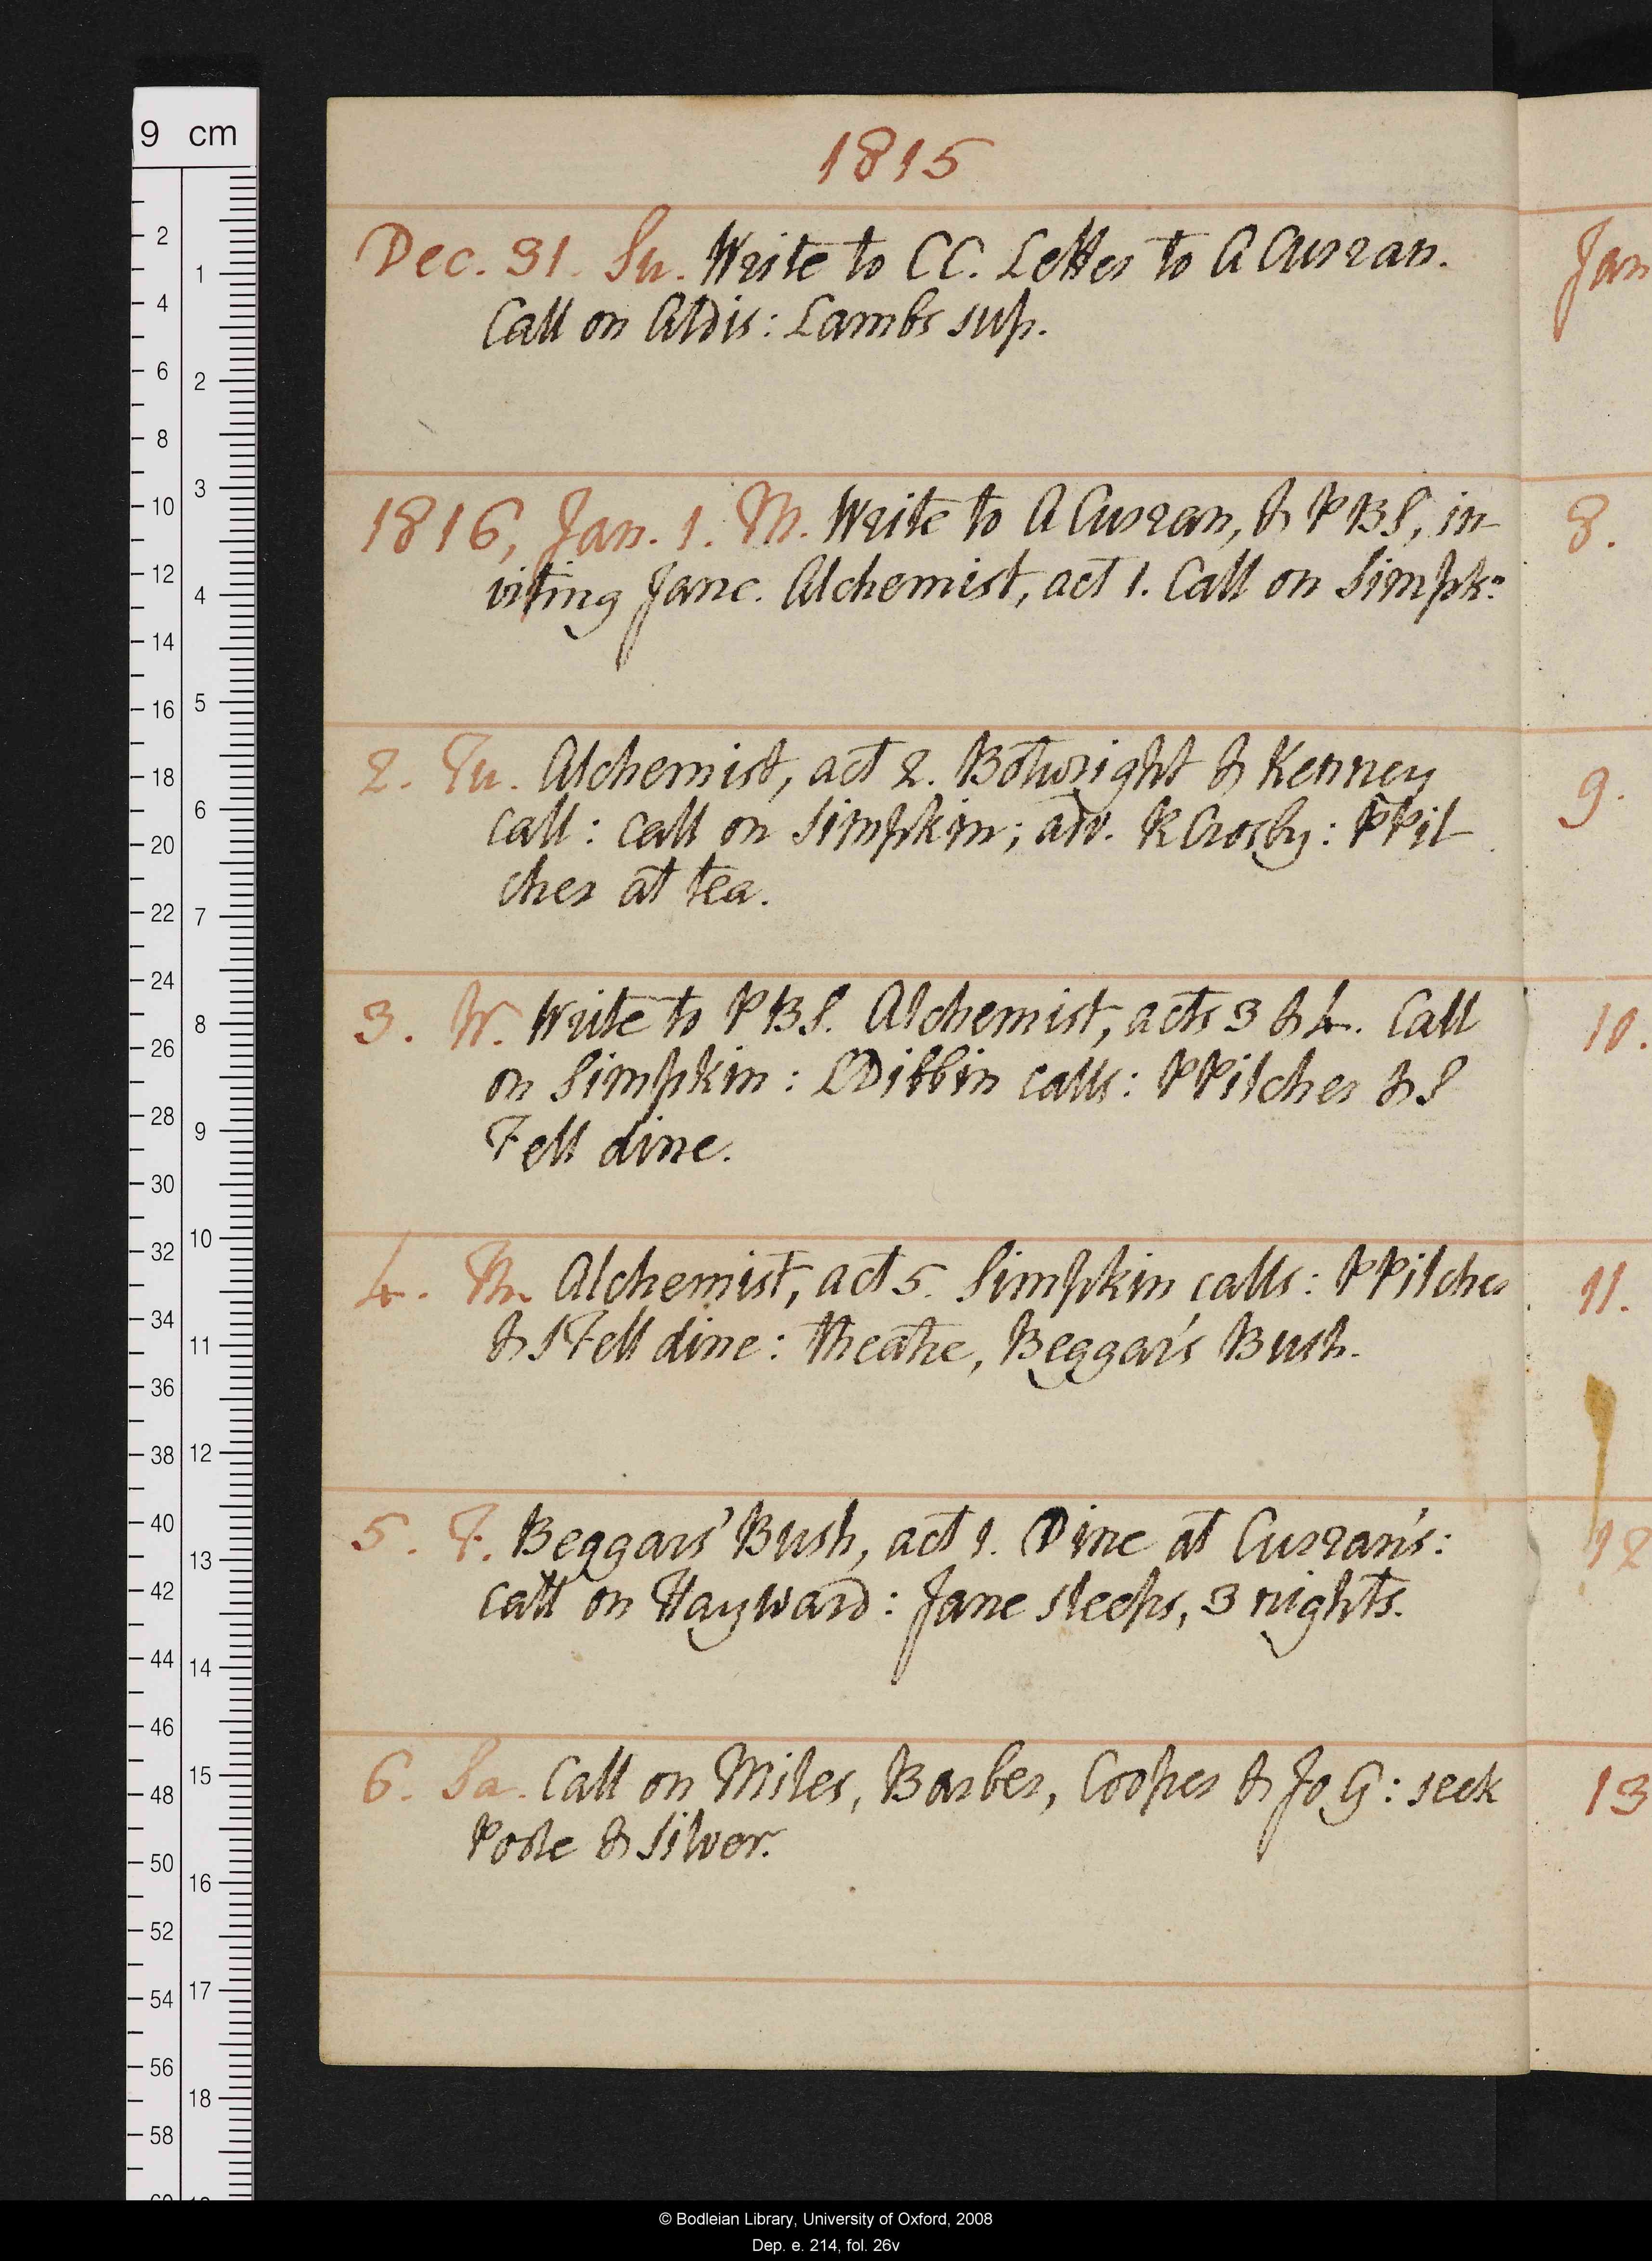 1815
Dec. 31. Su. Write to CC. Letter to A Curran.
Call on Aldis: Lambs sup.
1816, Jan. 1. M. Write to A Curran, & PBS, in-
viting Jane. Alchemist, act 1. Call on Simpkn
2. Tu. Alchemist, act 2. Botwright & Kenney
call: call on Simpkin; adv. R Crosby: P Pil-
cher at tea.
3. W. Write to PBS. Alchemist, acts 3 & 4. Call
on Simpkin: C Dibbin calls: P Pilcher & S
Fell dine.
4. Th. Alchemist, act 5. Simpkin calls: P Pilcher
& S Fell dine: theatre, Beggar's Bush.
5. F. Beggars' Bush, act 1. Dine at Curran's:
call on Hayward: Jane sleeps, 3 nights.
6. Sa. Call on Miles, Barber, Cooper & Jo G: seek
Poole & Silver.
Jan
8.
9.
10.
11.
12
13
9 cm
2
4
6
8
10
12
14
16
18
20
22
24
26
28
30
32
34
36
38
40
42
44
46
48
50
52
54
56
58
1
2
3
4
5
6
7
8
9
10
11
12
13
14
15
16
17
18
© Bodleian Library, University of Oxford, 2008
Dep. e. 214, fol. 26v